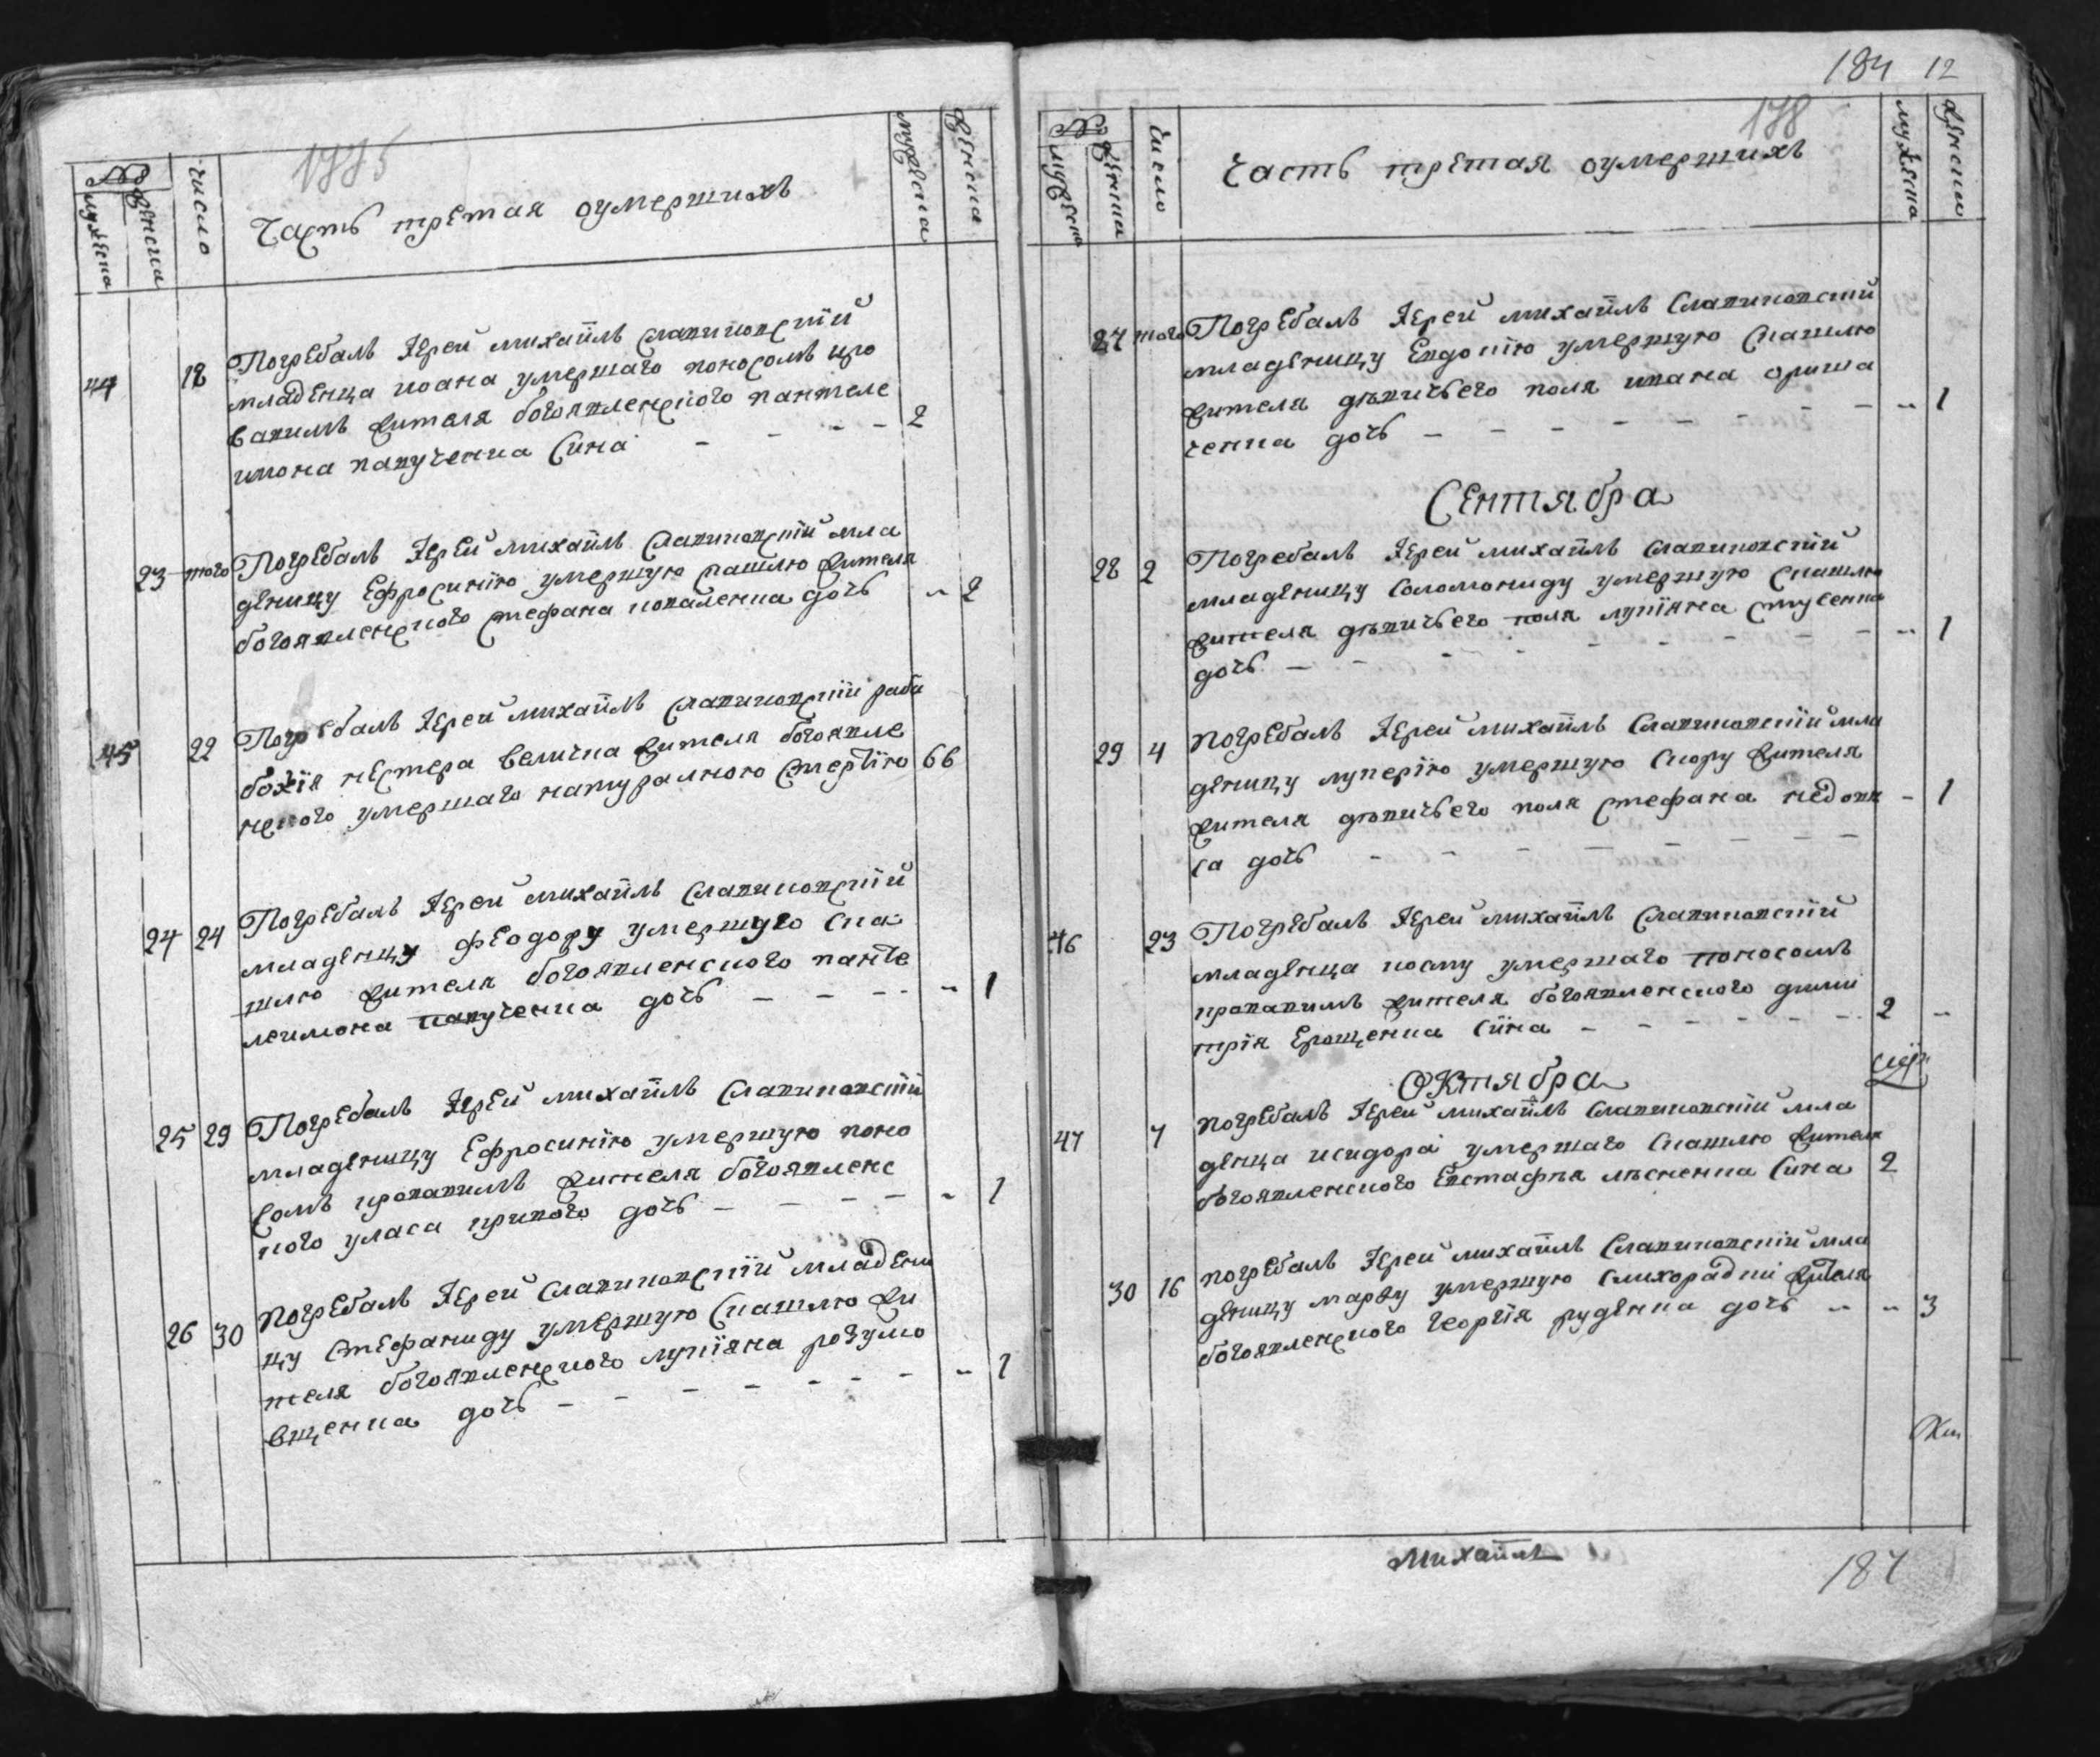 1785
№
мужеска
женска
число
Часть третая оумершихъ
мужеска
женска
44 18 Погребалъ Іерей михаилъ славиновскій
младенца иоана умершаго поносомъ кро
вавимъ жителя богоявленского пантеле
имона папученка сина 2
23 того Погребалъ Іерей михаилъ славиновскій мла
деницу Ефросинію умершую скашлю жителя
богоявленского стефана коваленка дочь 2
45 22 Погребалъ Іерей михаилъ славиновскій раба
божія нестера жителя богоявле
нского умершаго натуралною смертію 66
24 24 Погребалъ Іерей михаилъ славиновскій
младеницу феодору умершую ска
шлю жителя богоявленского панте
леимона папученка дочь 1
25 29 Погребалъ Іерей михаилъ славиновскій
младеницу Ефросинію умершую поно
сомъ кровавимъ жителя богоявленс
кого уласа кривого дочь 1
26 30 Погребалъ Іерей славиновскій младени
цу стефаниду умершую скашлю жи
теля богоявленского лукіяна розумо
вщенка дочь 1
184 12
178
№
мужеска
женска
число
Часть третая оумершихъ
мужеска
женска
27 того Погребалъ Іерей михаилъ славиновский
младеницу Евдокію умершую скашлю
жителя девичьего поля ивана
ченка дочь 1
Сентябра
28 2 Погребалъ Іерей михаилъ славиновскій
младеницу соломониду умершую скашлю
жителя девичьего поля лукіяна
дочь 1
29 4 Погребалъ Іерей михаилъ славиновскій мла
деницу лукерію умершую скору жителя
жителя девичьего поля стефана
са дочь 1
46 23 Погребалъ Іерей михаилъ славиновскій
младенца косму умершаго поносомъ
кровавимъ жителя богоявленского дими
трія Ерощенка сина 2
Октябра
47 7 Погребалъ Іерей михаилъ славиновскій мла
денца исидора умершаго скашлю жителя
богоявленского Евстафѣя лѣсненка сина 2
30 16 Погребалъ Іерей михаилъ славиновскій мла
деницу марѳу умершую слихорадки жителя
богоявленского георгія руденка дочь 3
Михаилъ
187